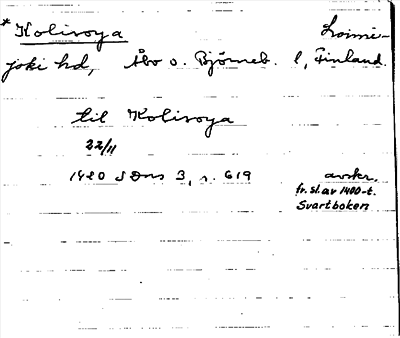 * Kolivoya Loimi-
joki hd, Åbo o. Björneb. l, Finland.
til Kolivoya
22/11
1420 SDns 3, s. 619 avskr.
fr. sl. av 1400-t.
Svartboken